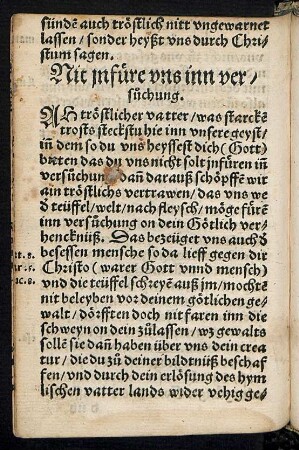 sünden̄ auch tröstlich nitt vngewarnet
lassen / sonder heyßt vns durch Chri-
stum sagen.
Nit jnfüre vns inn ver /
süchung.
Ach tröstlicher vatter / was starckē
trosts steckstu hie inn vnsere geyst /
in dem so du vns heyssest dich (Gott)
bitten das du vns nicht solt jnfüren in̄
versüchung dan̄ darauß schöpffen wir
ain tröstlichs vertrawen / das vns we
d teüffel / welt / nach fleysch / möge fürē
inn versüchung on dein Götlich ver-
hencknüß. Das bezeüget vns auch d
besessen mensche so da lieff gegen dir
Christo (warer Gott vnnd mensch)
vnd die teüffel schreyē auß jm / mochtē
nit beleyben vor deinem götlichen ge-
walt / dörfften doch nit faren inn die
schweyn on dein zůlassen / wz gewalts
sollē sie dan̄ haben über vns dein crea
tur / die du zů deiner bildtnüß beschaf
fen / vnd durch dein erlösung des hym
lischen vatter lands wider vehig ge-